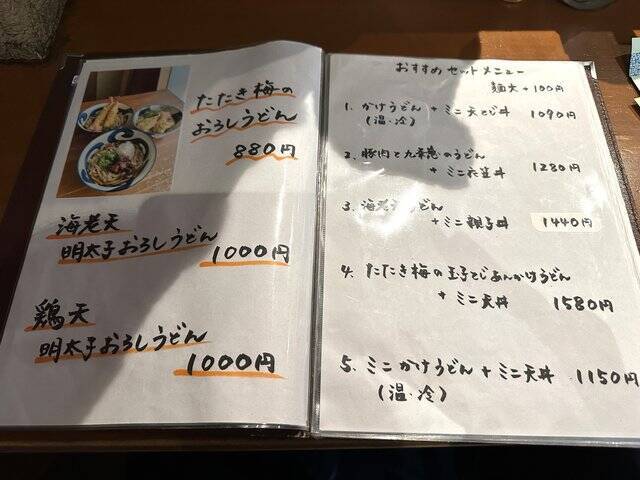 たたき梅の
おろしうどん
880円
海老天
明太子おろしうどん 1000円
鶏天
明太子おろしうどん
1000円
おすすめ セットメニュー
麺大 +100円
1. かけうどん + ミニ天とじ丼 1090円
(温・冷)
2. 豚肉と九条葱のうどん
+ ミニ衣笠丼 1280円
3. 海老天うどん
+ ミニ親子丼 1440円
4. たたき梅の玉子とじあんかけうどん
+ ミニ天丼 1580円
5. ミニかけうどん + ミニ天丼 1150円
(温・冷)